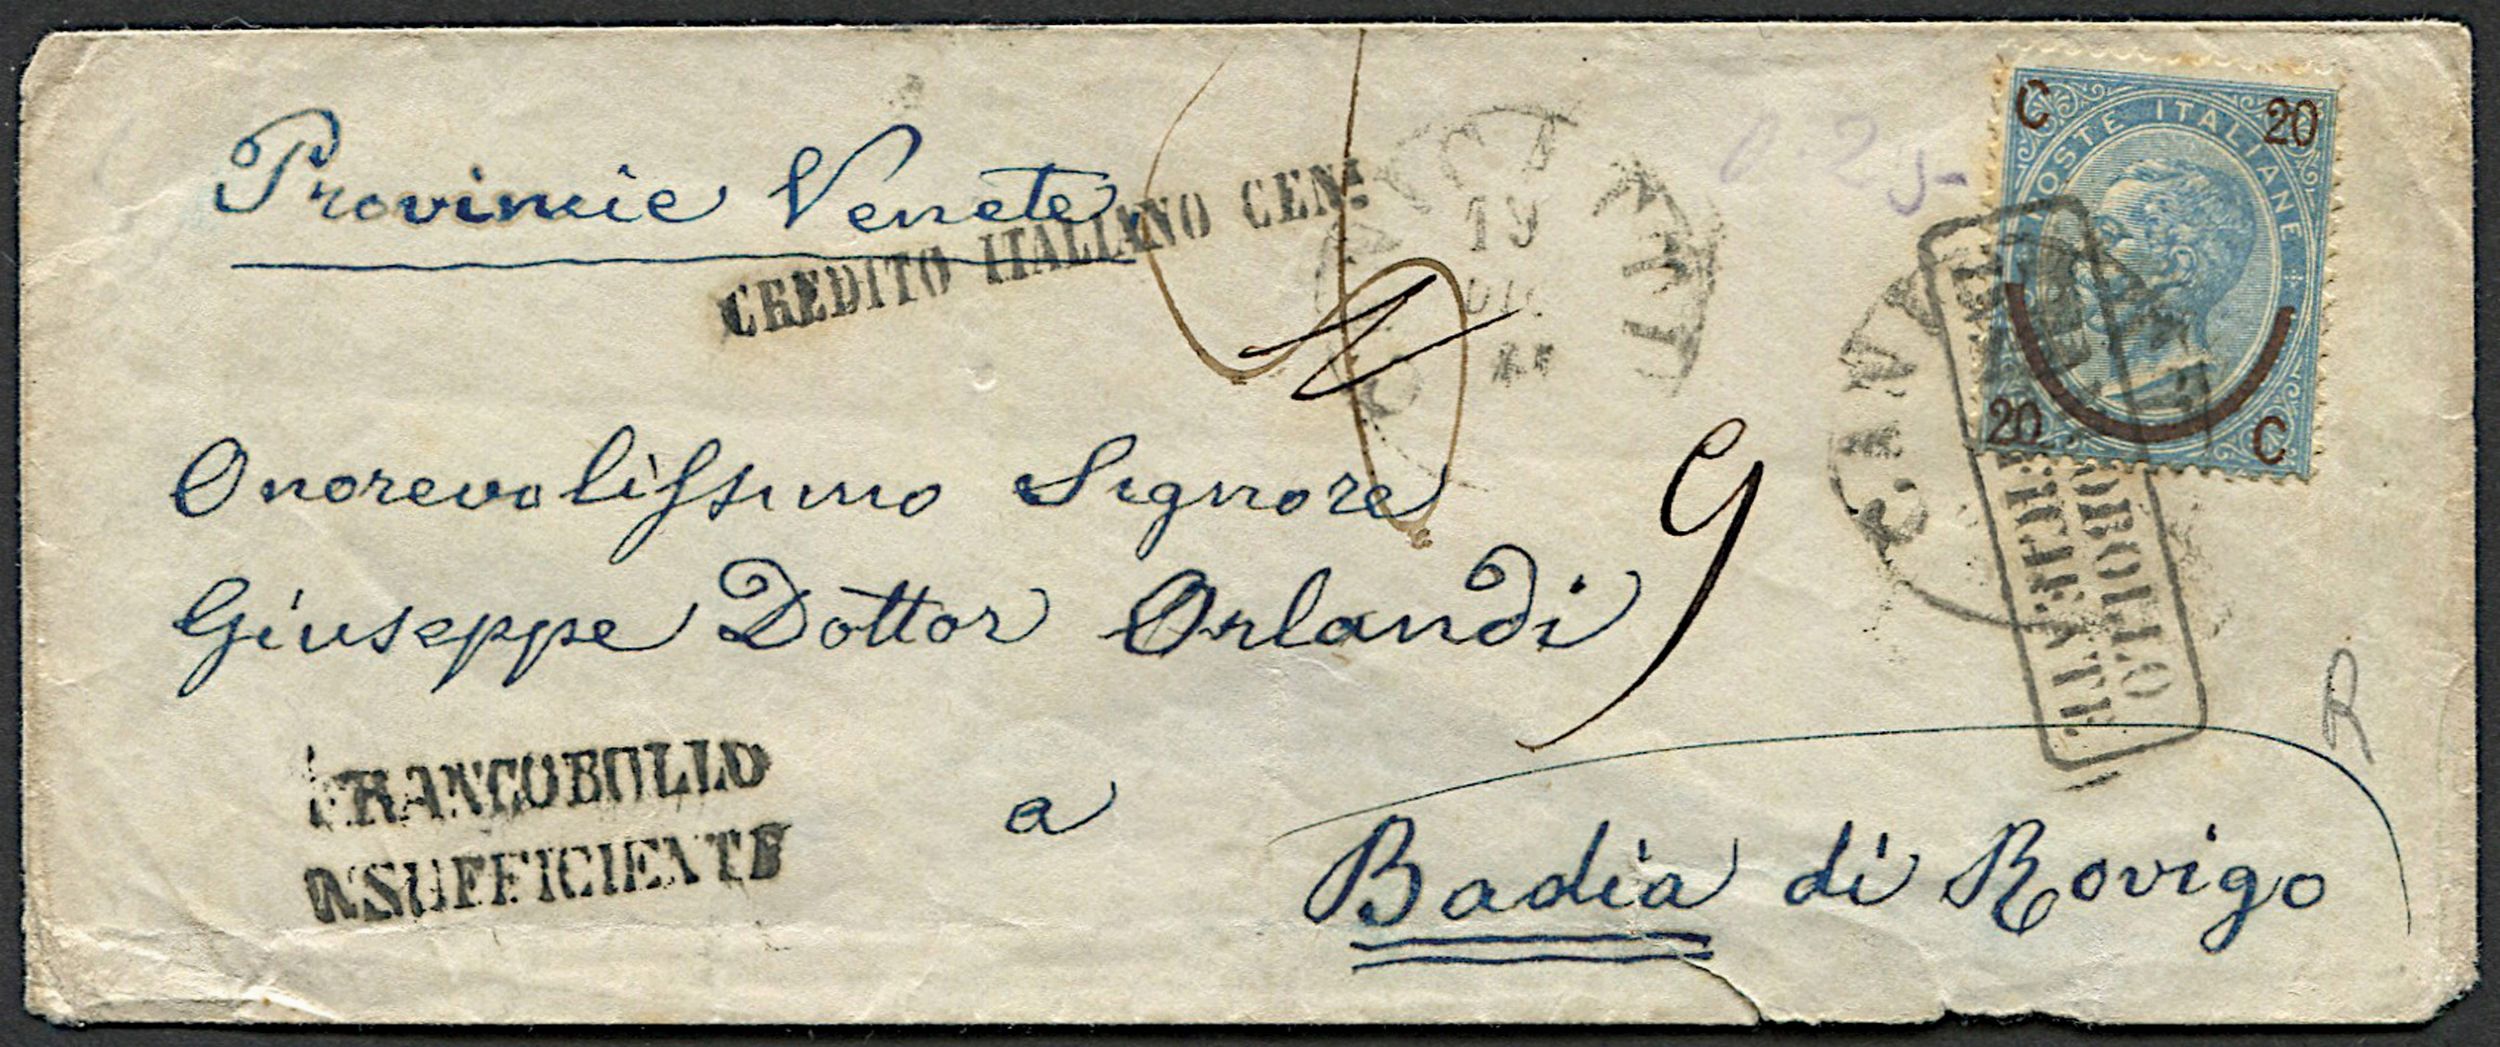 Provincie Venete
CREDITO ITALIANO CEN.
19
DIC
C 20
POSTE ITALIANE
20 C
Onorevolissimo Signore
Giuseppe Dottor Orlandi
9
FRANCOBOLLO
INSUFFICIENTE
a
Badia di Rovigo
R